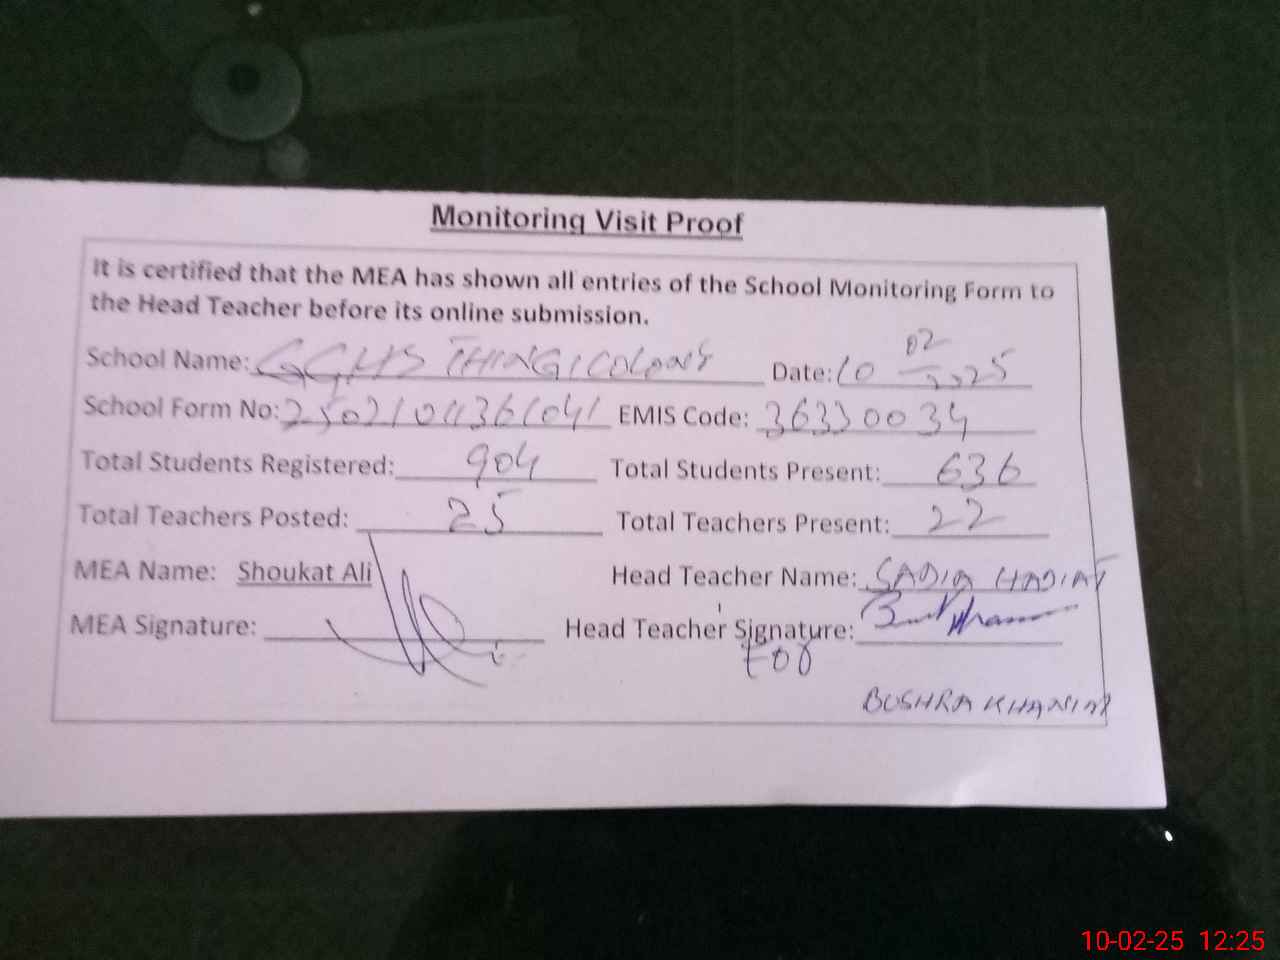 Monitoring Visit Proof
It is certified that the MEA has shown all entries of the School Monitoring Form to
the Head Teacher before its online submission.
School Name: GGHS THINGI COLONY Date: 10 02 2025
School Form No: EMIS Code: 36330034
Total Students Registered: 904 Total Students Present: 636
Total Teachers Posted: 25 Total Teachers Present: 22
MEA Name: Shoukat Ali Head Teacher Name: SADIA
MEA Signature: Head Teacher Signature:
for
BUSHRA KHANUM
10-02-25 12:25